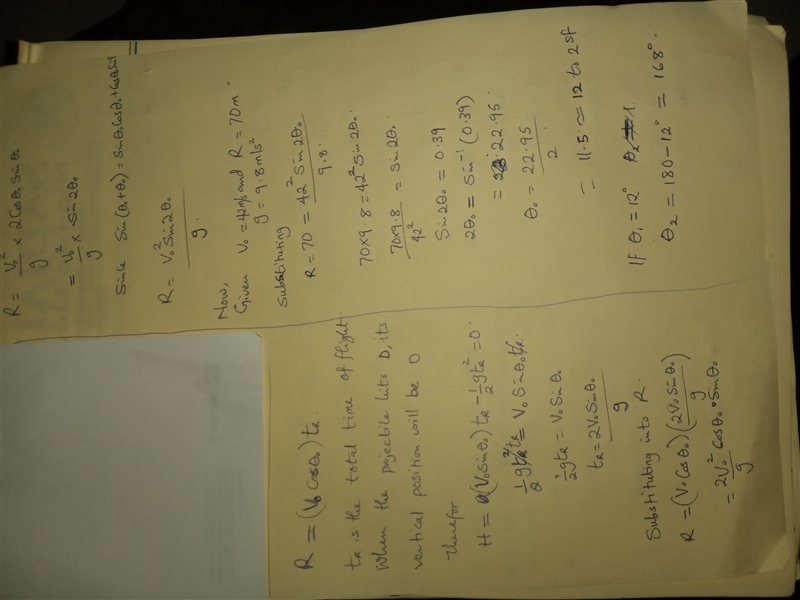 R = (V₀ Cosθ₀) tR
tR is the total time of flight.
When the projectile hits D, its
vertical position will be 0
Therefor
H = (V₀Sinθ₀) tR - ½gtR² = 0.
½gtR² = V₀ Sinθ₀tR.
½gtR = V₀ Sinθ₀
tR = 2V₀Sinθ₀
g
Substituting into R.
R = (V₀ Cosθ₀) (2V₀Sinθ₀)
g
= 2V₀² Cosθ₀ • Sinθ₀
g
R = V₀² × 2Cosθ₀ Sinθ₀
g
= V₀² × Sin2θ₀
g
Since Sin(θ₀+θ₀) = Sinθ₀Cosθ₀ + Cosθ₀Sinθ
R = V₀² Sin2θ₀
g.
Now,
Given V₀ = 42m/s and R = 70m.
g = 9.8m/s²
Substituting
R = 70 = 42² Sin2θ₀
9.8.
70×9.8 = 42² Sin2θ₀
70×9.8 = Sin2θ₀.
42²
Sin2θ₀ = 0.39
2θ₀ = Sin⁻¹ (0.39)
= 22.95.
θ₀ = 22.95
2.
= 11.5 ≈ 12 to 2sf
If θ₁ = 12°
θ₂ = 180-12° = 168°.